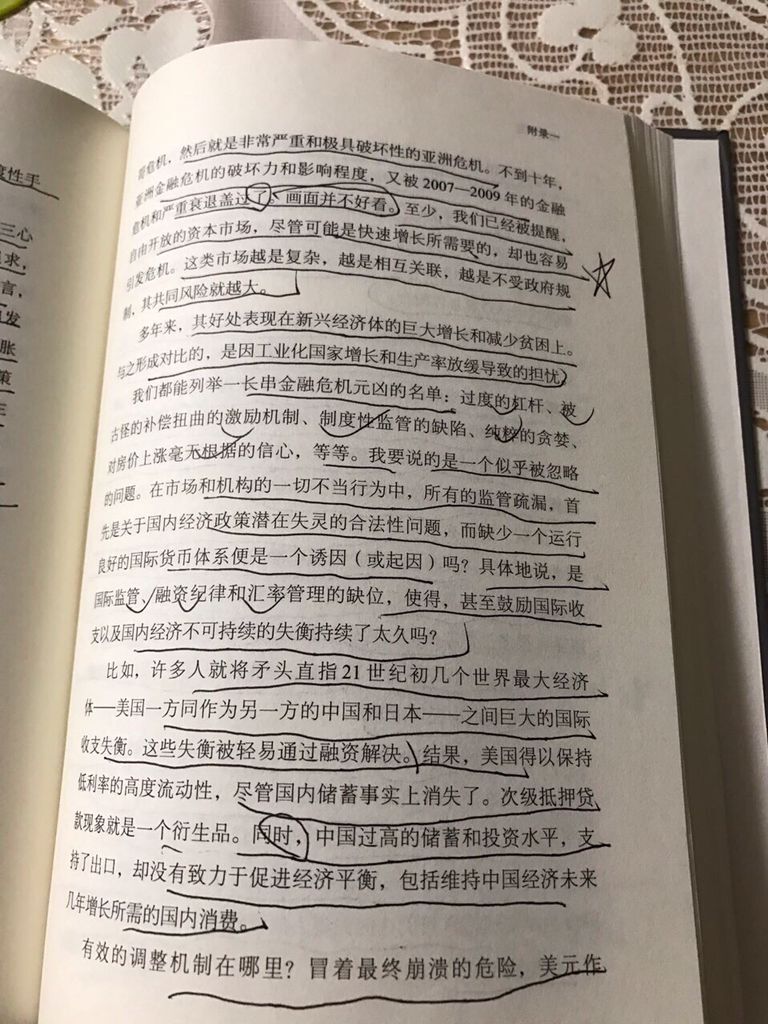 附录一
而危机，然后就是非常严重和极具破坏性的亚洲危机。不到十年，
亚洲金融危机的破坏力和影响程度，又被2007—2009年的金融
危机和严重衰退盖过了，画面并不好看。至少，我们已经被提醒，
自由开放的资本市场，尽管可能是快速增长所需要的，却也容易
引发危机。这类市场越是复杂，越是相互关联，越是不受政府规
制，其共同风险就越大。
多年来，其好处表现在新兴经济体的巨大增长和减少贫困上。
与之形成对比的，是因工业化国家增长和生产率放缓导致的担忧。
我们都能列举一长串金融危机元凶的名单：过度的杠杆、被
古怪的补偿扭曲的激励机制、制度性监管的缺陷、纯粹的贪婪、
对房价上涨毫无根据的信心，等等。我要说的是一个似乎被忽略
的问题。在市场和机构的一切不当行为中，所有的监管疏漏，首
先是关于国内经济政策潜在失灵的合法性问题，而缺少一个运行
良好的国际货币体系便是一个诱因（或起因）吗？具体地说，是
国际监管、融资纪律和汇率管理的缺位，使得，甚至鼓励国际收
支以及国内经济不可持续的失衡持续了太久吗？
比如，许多人就将矛头直指21世纪初几个世界最大经济
体——美国一方同作为另一方的中国和日本——之间巨大的国际
收支失衡。这些失衡被轻易通过融资解决。结果，美国得以保持
低利率的高度流动性，尽管国内储蓄事实上消失了。次级抵押贷
款现象就是一个衍生品。同时，中国过高的储蓄和投资水平，支
持了出口，却没有致力于促进经济平衡，包括维持中国经济未来
几年增长所需的国内消费。
有效的调整机制在哪里？冒着最终崩溃的危险，美元作
度性手
三心
求，
言，
发
胀
策